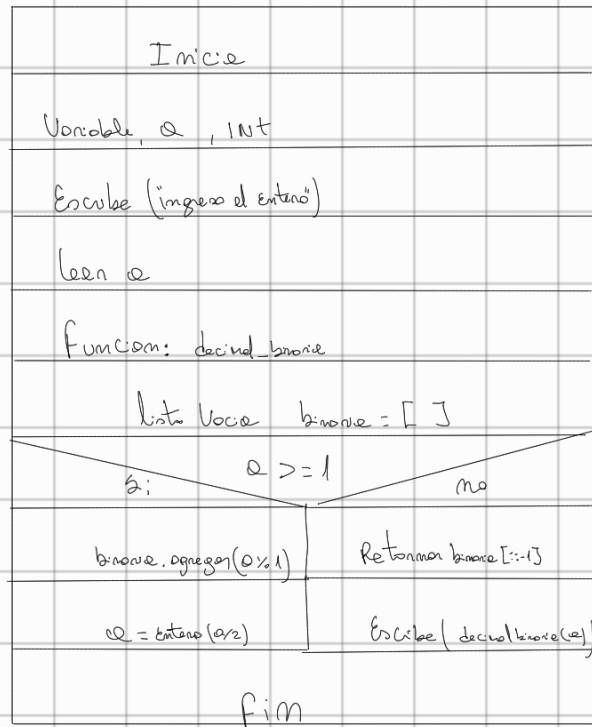 Inicio
Variable, a, INt
Escribe ("ingreso el entero")
leer a
funcion: decimal_binario
lista vacia binario = [ ]
a >= 1
Si no
binario.agregar(a%1) Retornar binario[::-1]
a = entero(a/2) Escribe(decimalbinario(a))
fin